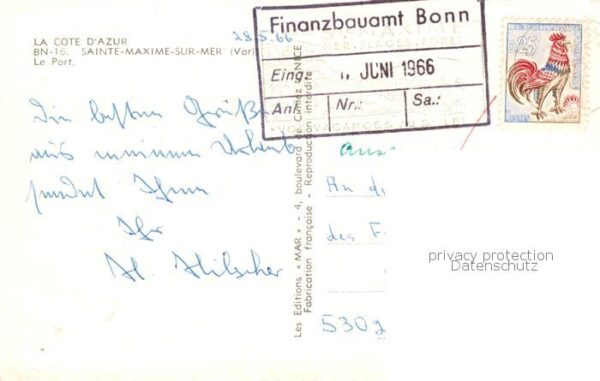 LA COTE D'AZUR
BN-16. SAINTE-MAXIME-SUR-MER (Var)
Le Port.
28.5.66
Die besten Grüße
aus meinem Urlaub
sendet Ihnen
Ihr
H. Hilscher
Les Editions « MAR » - 4, boulevard de Cimiez, NICE
Fabrication française - Reproduction interdite
Finanzbauamt Bonn
Eing. 1. JUNI 1966
Anl. Nr.: Sa.:
0,25
An
des F
5302
privacy protection
Datenschutz